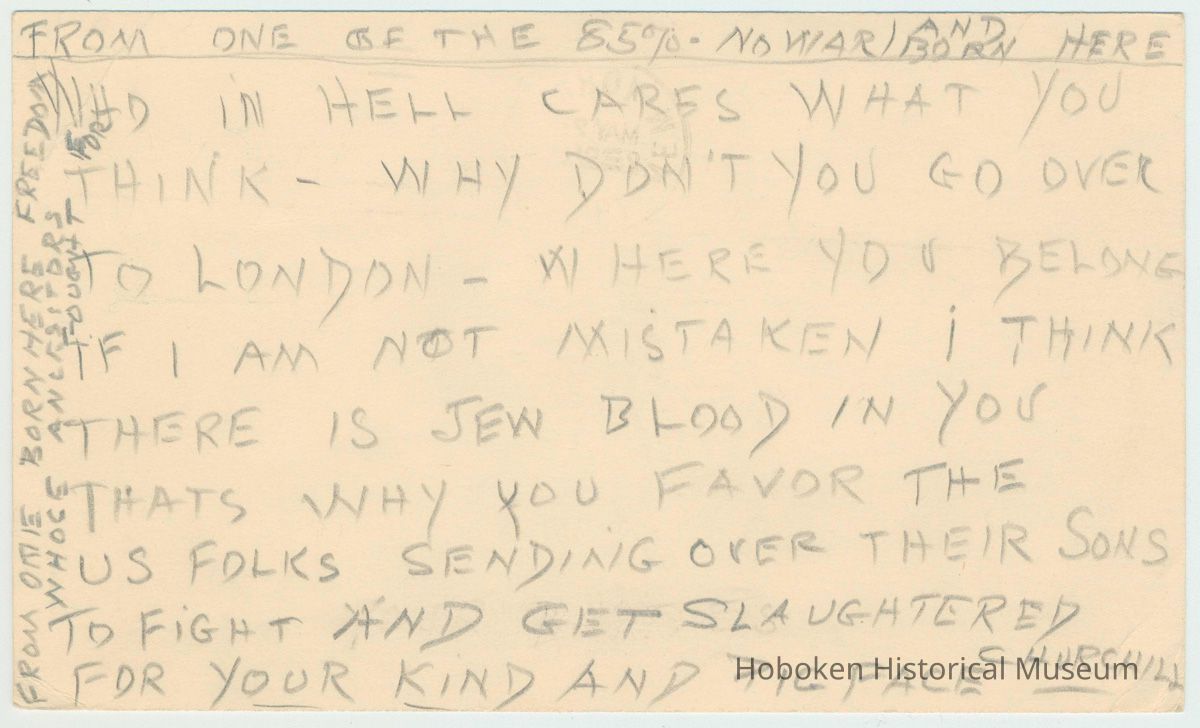 FROM ONE OF THE 85% - NO WAR / AND BORN HERE
WHO IN HELL CARES WHAT YOU
THINK - WHY DON'T YOU GO OVER
TO LONDON - WHERE YOU BELONG
IF I AM NOT MISTAKEN I THINK
THERE IS JEW BLOOD IN YOU
THATS WHY YOU FAVOR THE
US FOLKS SENDING OVER THEIR SONS
TO FIGHT AND GET SLAUGHTERED
FOR YOUR KIND AND PIG FACE CHURCHILL
FROM ONE BORN HERE
WHOSE ANCESITORS FOUGHT FOR FREEDOM
Hoboken Historical Museum